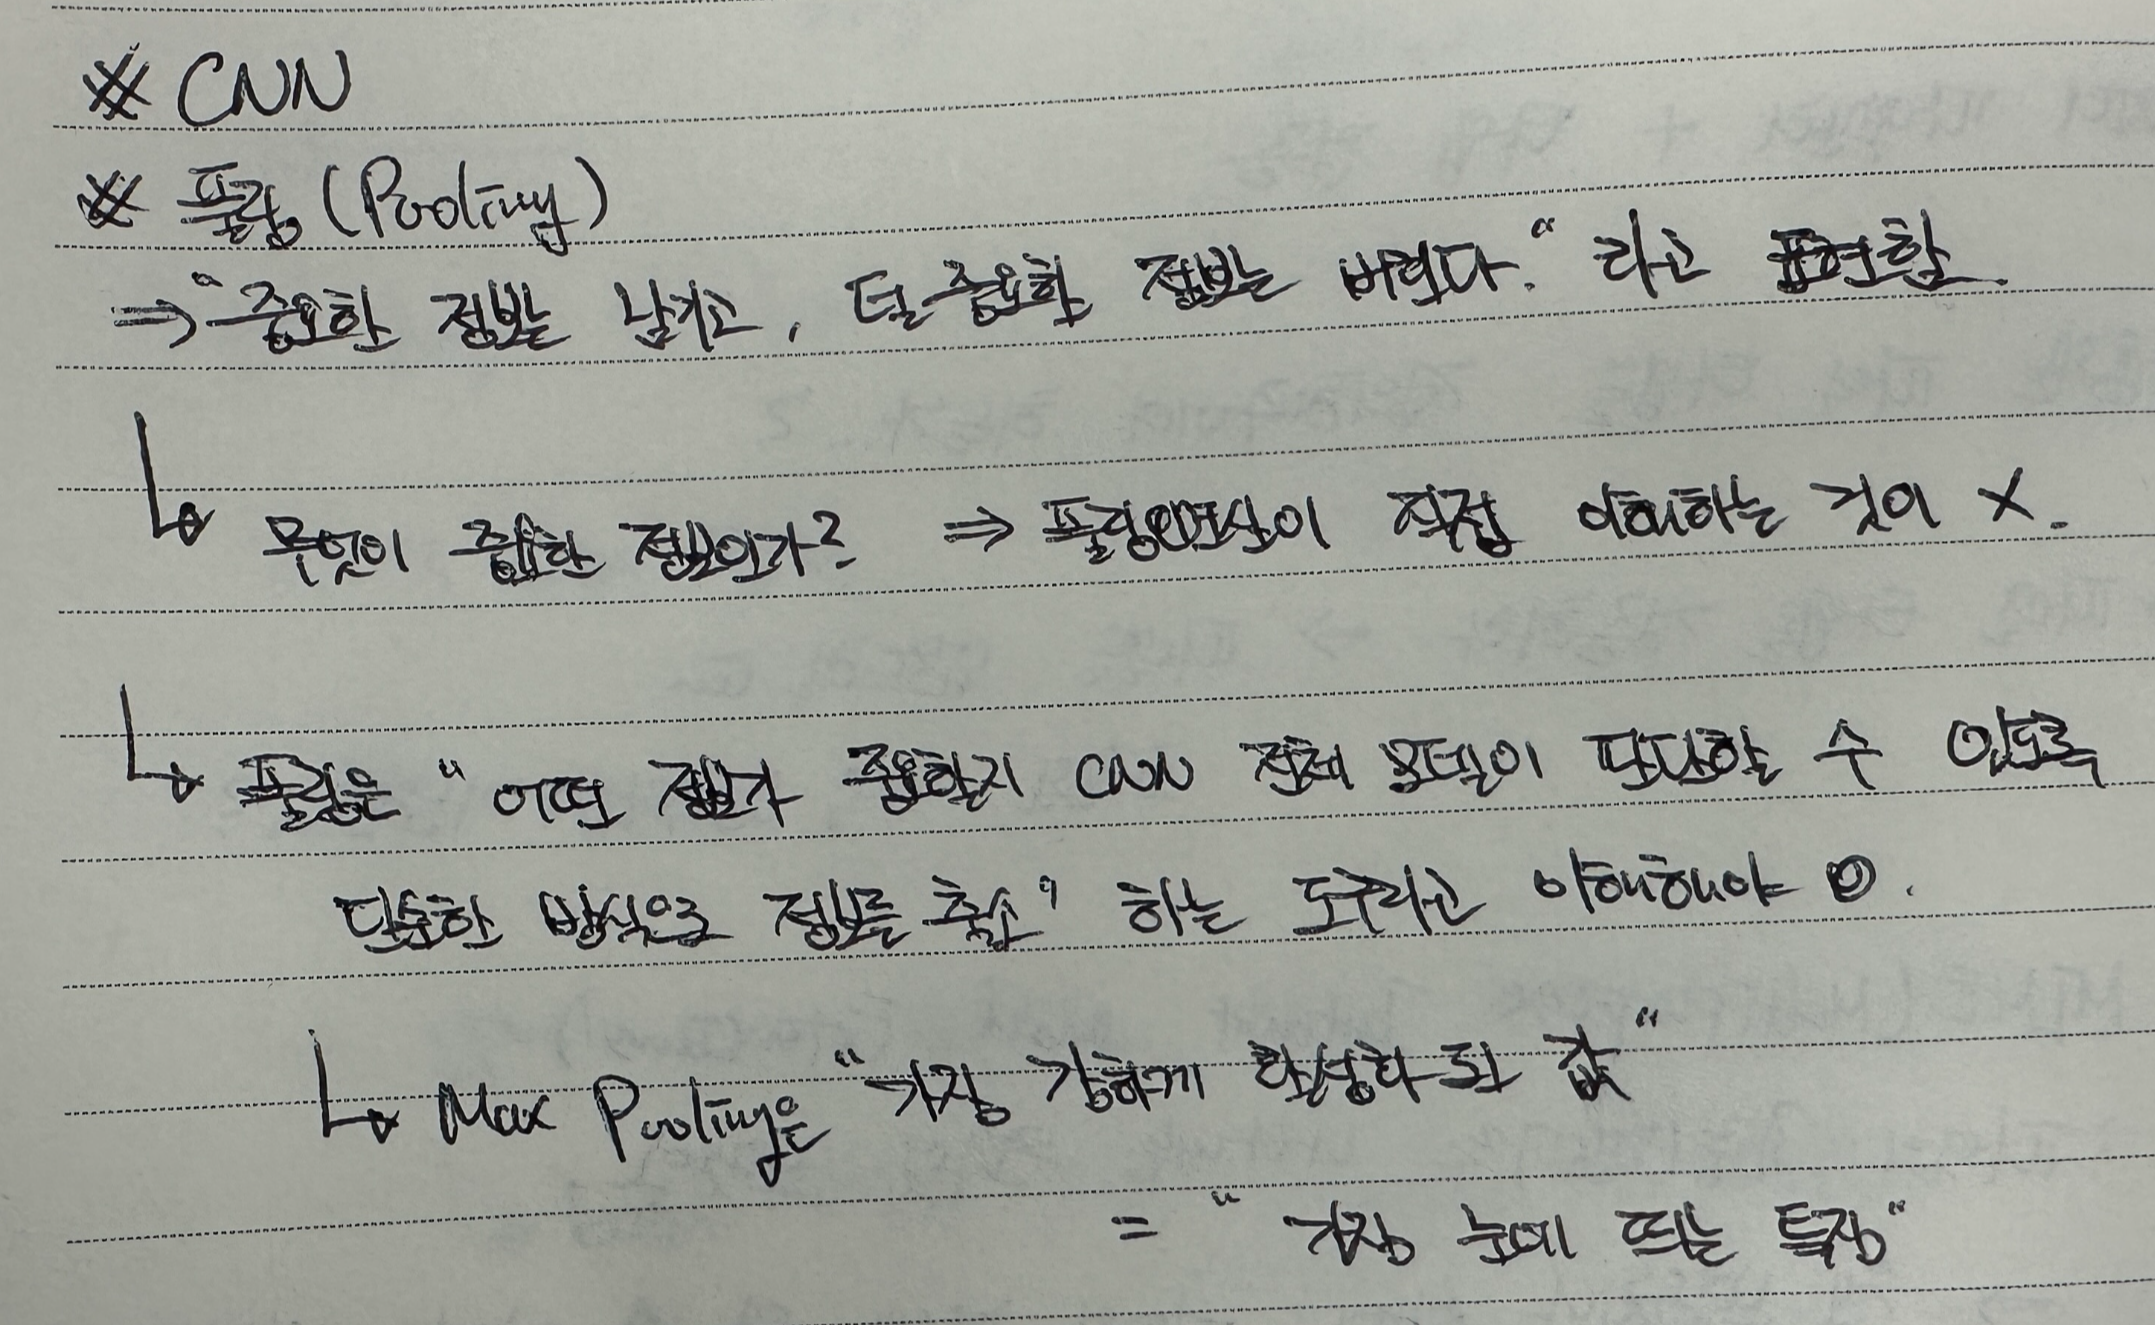 ※ CNN
※ 풀링 (Pooling)
⇒ "중요한 정보는 남기고, 덜 중요한 정보는 버린다." 라고 표현함.
↳ 무엇이 중요한 정보인가? ⇒ 풀링연산이 직접 이해하는 것이 X.
↳ 풀링은 "어떤 정보가 중요할지 CNN 전체 모델이 판단할 수 있도록
단순한 방식으로 정보를 축소" 하는 도구라고 이해해야 O.
↳ Max Pooling은 "가장 강하게 활성화 된 값"
= "가장 눈에 띄는 특징"